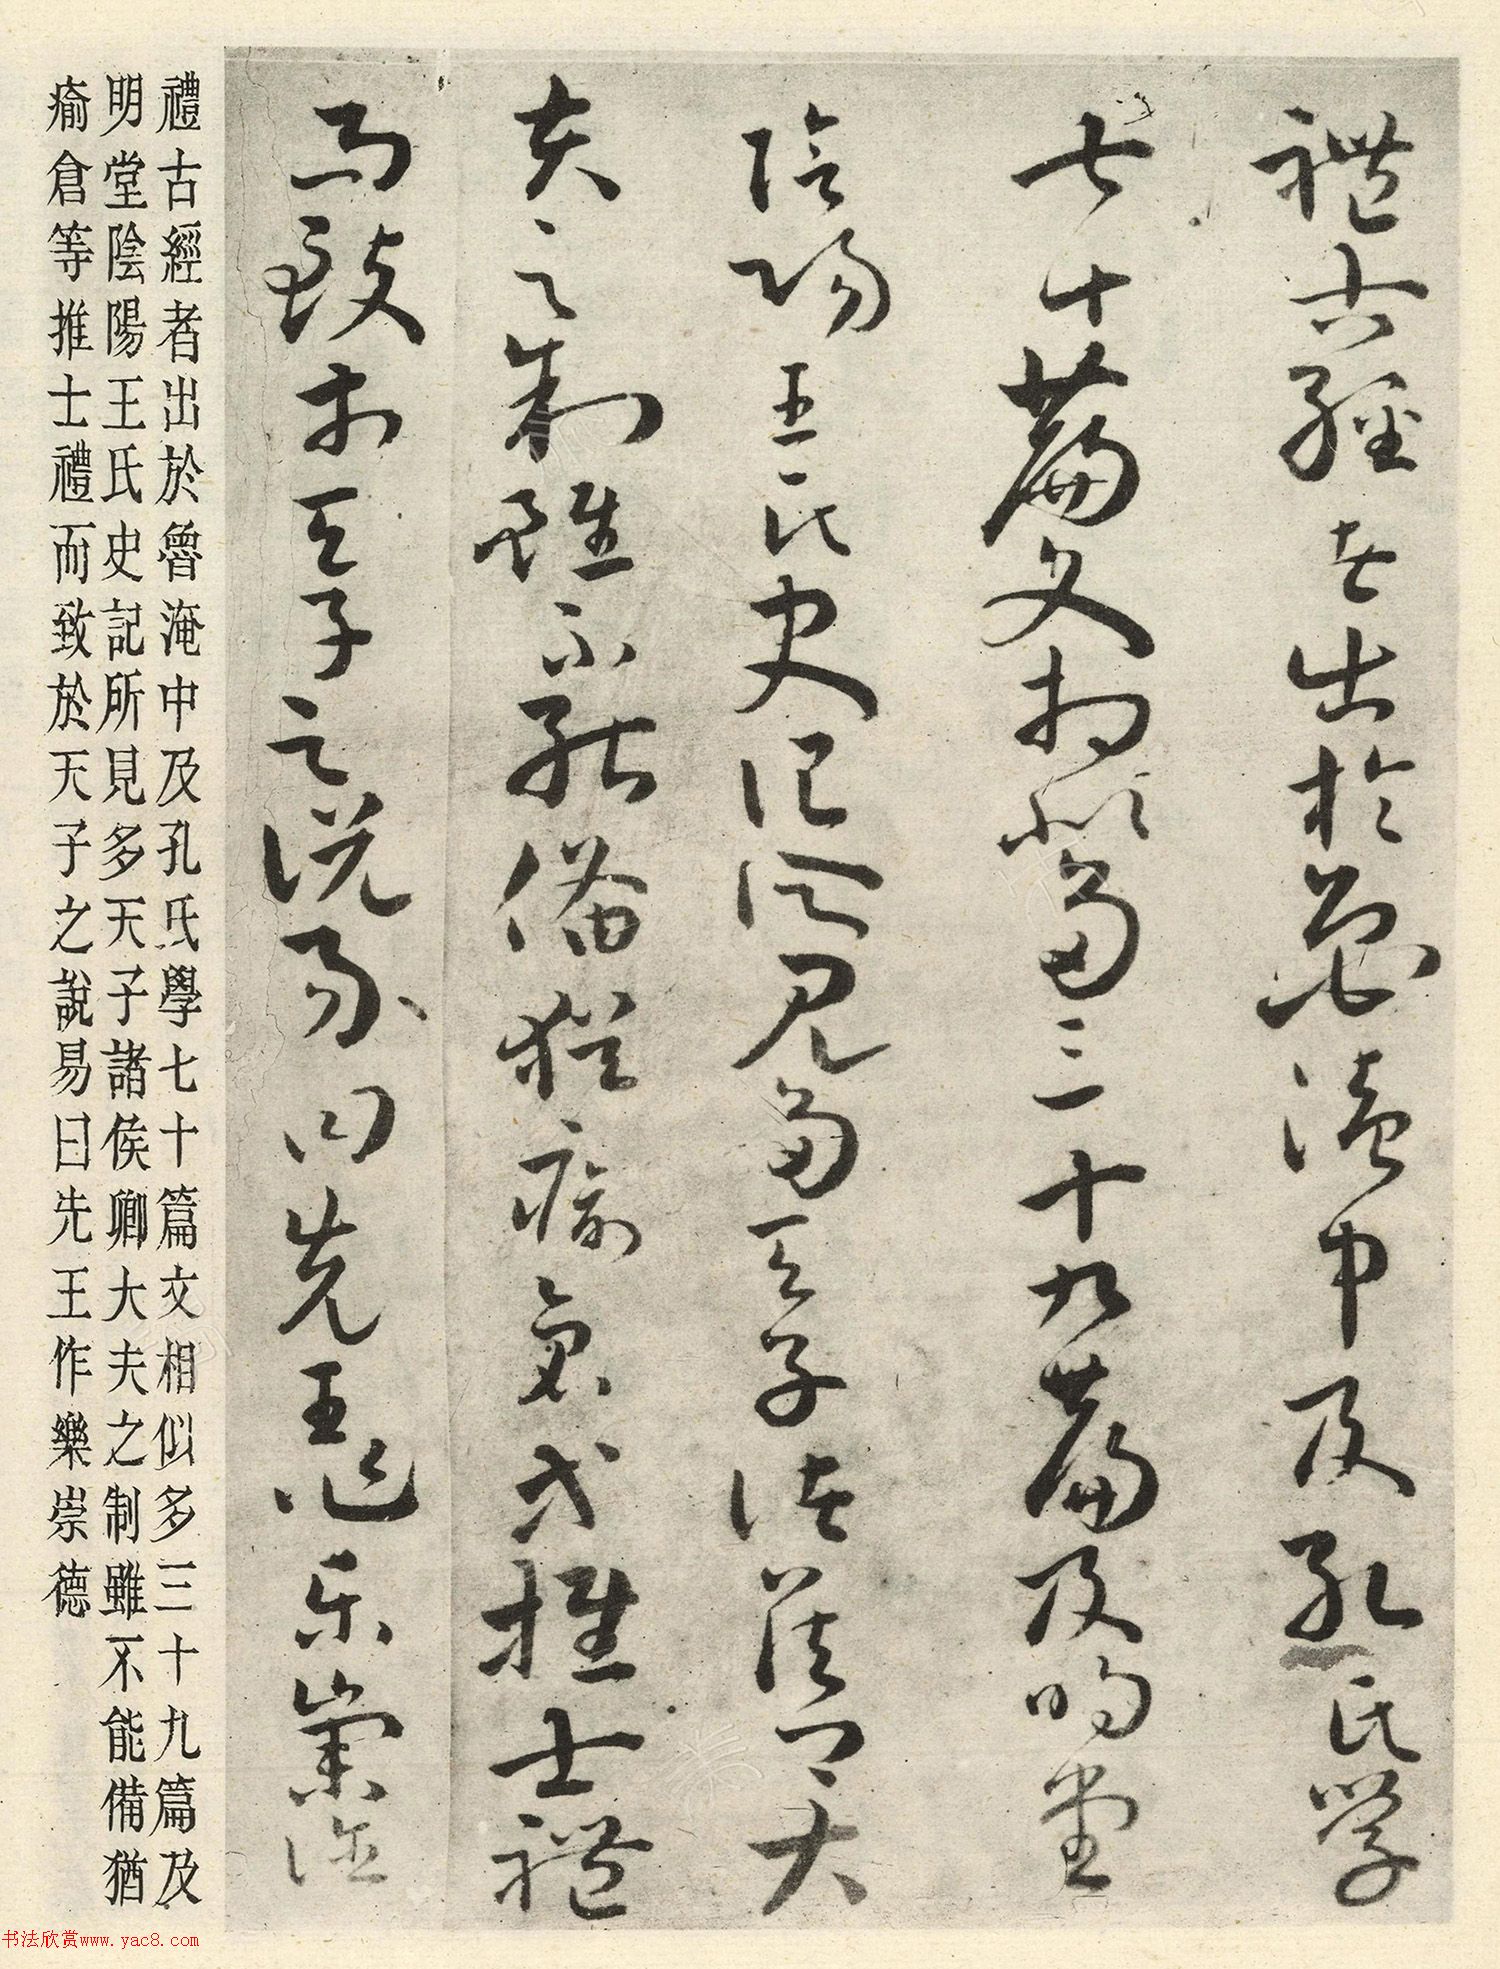 禮古經者出於魯淹中及孔氏學
七十篇文相似多三十九篇及明堂
陰陽王氏史記所見多天子諸侯卿大
夫之制雖不能備猶瘉倉等推士禮
而致於天子之說易曰先王作樂崇德
禮古經者出於魯淹中及孔氏學七十篇文相似多三十九篇及
明堂陰陽王氏史記所見多天子諸侯卿大夫之制雖不能備猶
瘉倉等推士禮而致於天子之說易曰先王作樂崇德
书法欣赏www.yac8.com